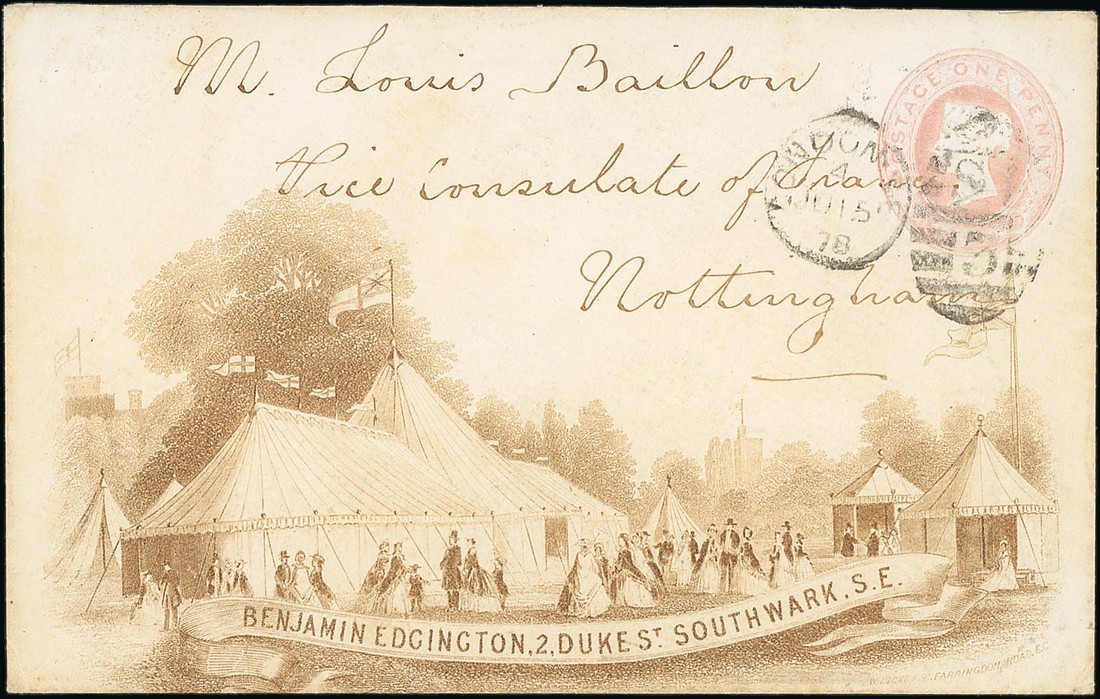 M. Louis Baillon
Vice Consulate of Fran
Nottingham
POSTAGE ONE PENNY
LONDON
4
JU 15
78
BENJAMIN EDGINGTON, 2, DUKE ST. SOUTHWARK. S.E.
FARRINGDON ROAD. E.C.